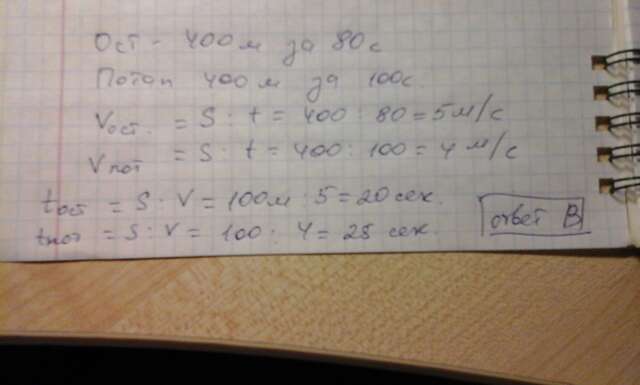 Ост - 400м за 80с
Потап 400м за 100с.
Vост. = S : t = 400 : 80 = 5м/с
Vпот = S : t = 400 : 100 = 4м/с
tост = S : V = 100м : 5 = 20 сек.
tпот = S : V = 100 : 4 = 25 сек.
ответ В